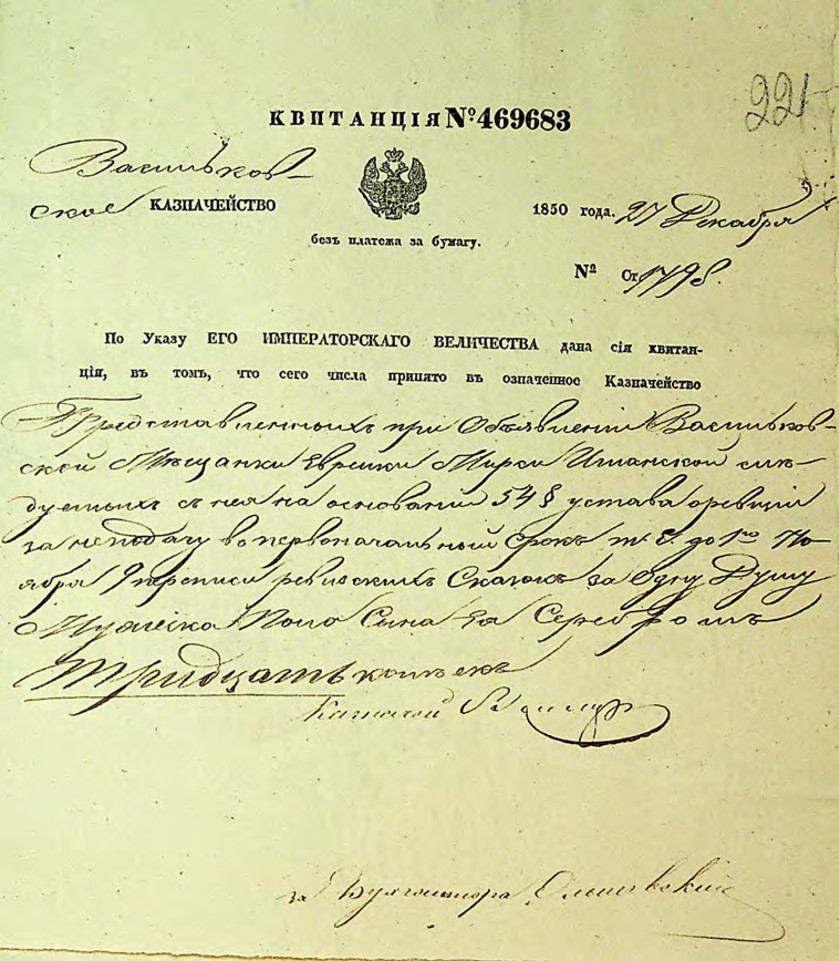 221
КВИТАНЦІЯ №469683
Васильков-
ское КАЗНАЧЕЙСТВО
1850 года. 27 Декабря
безъ платежа за бумагу.
№ Ст 1798.
По Указу ЕГО ИМПЕРАТОРСКАГО ВЕЛИЧЕСТВА дана сія квитан-
ція, въ томъ, что сего числа принято въ означенное Казначейство
Представленныхъ при Объявленіи Васильков-
ской Мѣщанки Еврейки Мирки слѣ-
дуемыхъ с нея на основаніи 54 § устава о ревизіи
за неподачу в первоначальный срокъ т. е. до 1го Но-
ября 9 переписи ревизскихъ Сказокъ за Одну Душу
Мужеска Пола Сына ея Серебромъ
тридцать копѣекъ
Казначей
за Бухгалтера